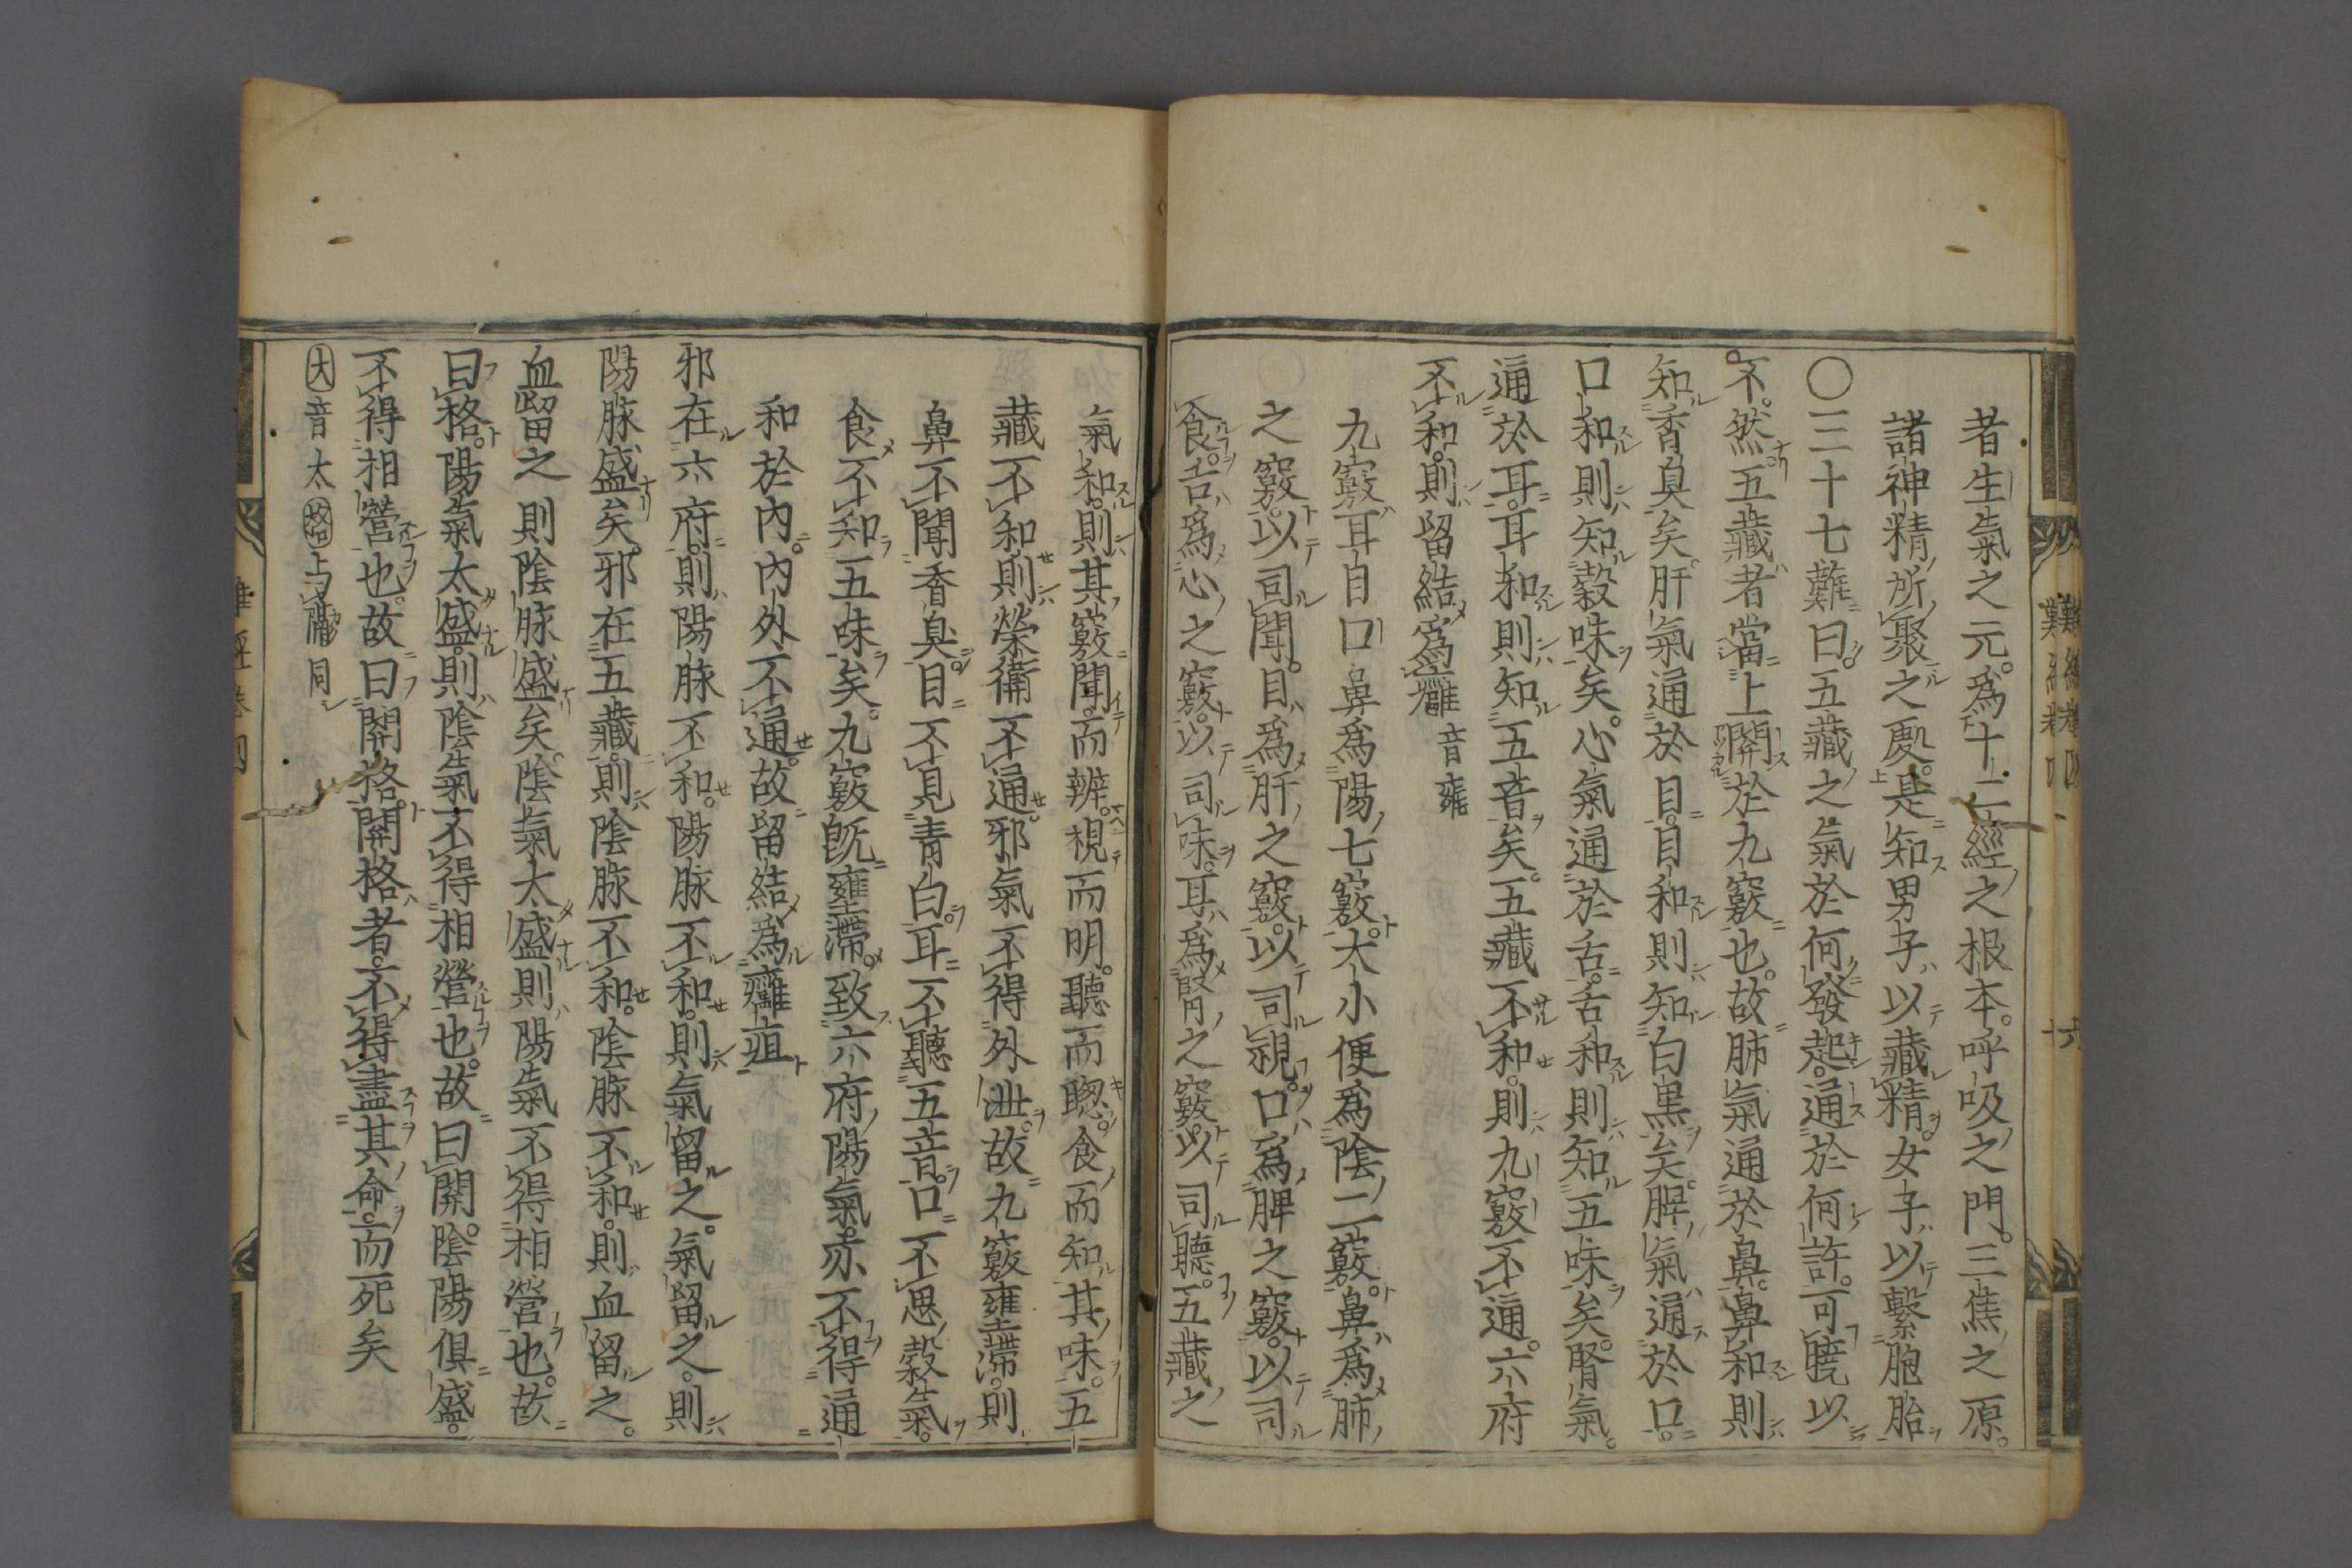 者生氣之元。爲十二經之根本。呼吸之門。三焦之原。
諸神精所聚之處。是知男子以藏精。女子以繫胞胎
〇三十七難曰。五藏之氣於何發起。通於何許。可曉以
不。然五藏者當上關於九竅也。故肺氣通於鼻。鼻和則
知香臭矣。肝氣通於目。目和則知白黒矣。脾氣通於口。
口和則知穀味矣。心氣通於舌。舌和則知五味矣。腎氣。
通於耳。耳和則知五音矣。五藏不和。則九竅不通。六府
不和。則留結爲癰 音雍
九竅耳目口鼻爲陽七竅。大小便爲陰二竅。鼻爲肺
之竅。以司聞。目爲肝之竅。以司視。口爲脾之竅。以司
食。舌爲心之竅。以司味。耳爲腎之竅。以司聽。五藏之
氣和。則其竅聞而辨。視而明。聽而聰。食而知其味。五
藏不和則榮衛不通。邪氣不得外泄。故九竅壅滯。則
鼻不聞香臭。目不見青白。耳不聽五音。口不思穀氣。
食不知五味矣。九竅既壅滯。致六府陽氣。亦不得通
和於內。內外不通。故留結爲癰疽
邪在六府。則陽脉不和。陽脉不和。則氣留之。氣留之。則
陽脉盛矣。邪在五藏。則陰脉不和。陰脉不和。則血留之。
血留之則陰脉盛矣。陰氣太盛則陽氣不得相營也。故
曰格。陽氣太盛。則陰氣不得相營也。故曰關。陰陽俱盛。
不得相營也。故曰關格。關格者。不得盡其命。而死矣
大音太 格与隔同
難經卷四
十六
難經卷四